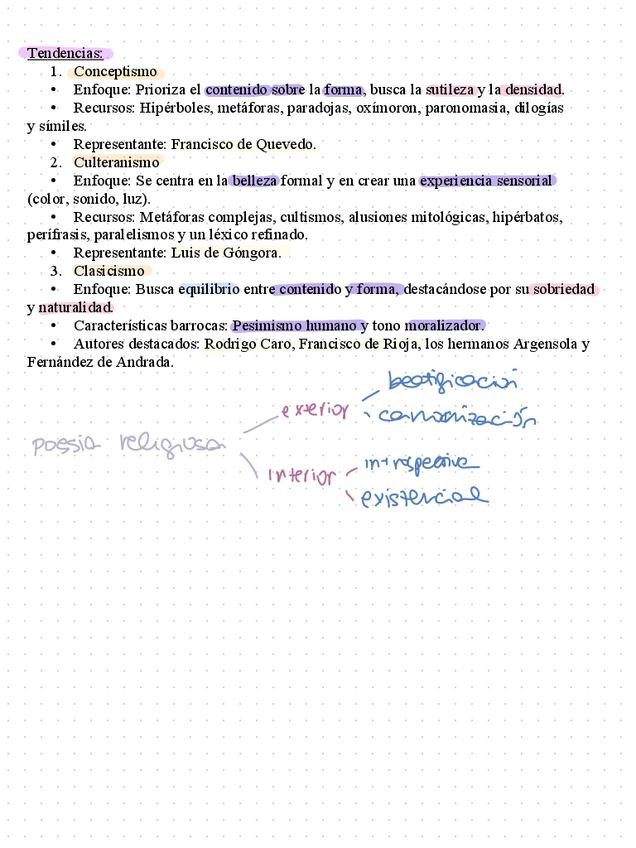 Tendencias:
1. Conceptismo
• Enfoque: Prioriza el contenido sobre la forma, busca la sutileza y la densidad.
• Recursos: Hipérboles, metáforas, paradojas, oxímoron, paronomasia, dilogías
y símiles.
• Representante: Francisco de Quevedo.
2. Culteranismo
• Enfoque: Se centra en la belleza formal y en crear una experiencia sensorial
(color, sonido, luz).
• Recursos: Metáforas complejas, cultismos, alusiones mitológicas, hipérbatos,
perífrasis, paralelismos y un léxico refinado.
• Representante: Luis de Góngora.
3. Clasicismo
• Enfoque: Busca equilibrio entre contenido y forma, destacándose por su sobriedad
y naturalidad.
• Características barrocas: Pesimismo humano y tono moralizador.
• Autores destacados: Rodrigo Caro, Francisco de Rioja, los hermanos Argensola y
Fernández de Andrada.
beatificación
exterior
canonización
poesia religiosa
introspective
interior
existencial